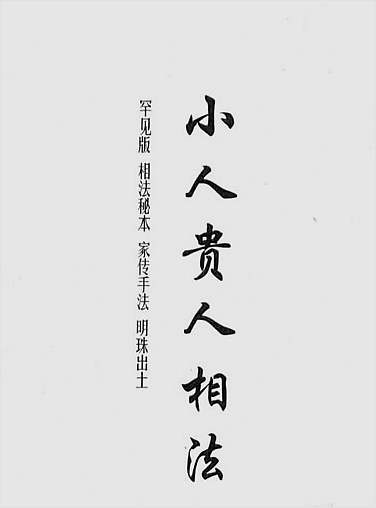 小人贵人相法
罕见版 相法秘本 家传手法 明珠出土